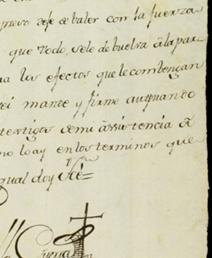 de valor con la fuerza
que todo, se le debuelva â la par
los efectos que le combengan
mande y firme autuando
testigos de mi assistencia â
no loay en los terminos que
qual doy feê=